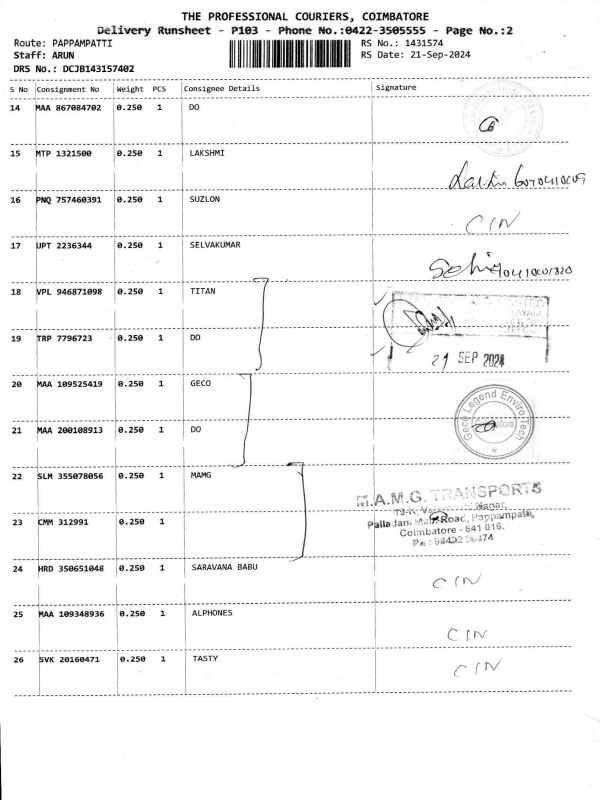 THE PROFESSIONAL COURIERS, COIMBATORE
Delivery Runsheet - P103 - Phone No.:0422-3505555 - Page No.:2
Route: PAPPAMPATTI
RS No.: 1431574
Staff: ARUN
RS Date: 21-Sep-2024
DRS No.: DCJB143157402
S No Consignment No Weight PCS Consignee Details Signature
14 MAA 867084702 0.250 1 DO
15 MTP 1321500 0.250 1 LAKSHMI
16 PNQ 757460391 0.250 1 SUZLON CIN
17 UPT 2236344 0.250 1 SELVAKUMAR
18 VPL 946871098 0.250 1 TITAN
19 TRP 7796723 0.250 1 DO
21 SEP 2024
20 MAA 109525419 0.250 1 GECO
Geco Legend EnviroTech
21 MAA 200108913 0.250 1 DO
22 SLM 355078056 0.250 1 MAMG
M.A.M.G. TRANSPORTS
Nagar,
23 CMM 312991 0.250 1
Palladam Main Road, Pappampatti,
Coimbatore - 641 016.
24 HRD 350651048 0.250 1 SARAVANA BABU CIN
25 MAA 109348936 0.250 1 ALPHONES CIN
26 SVK 20160471 0.250 1 TASTY CIN